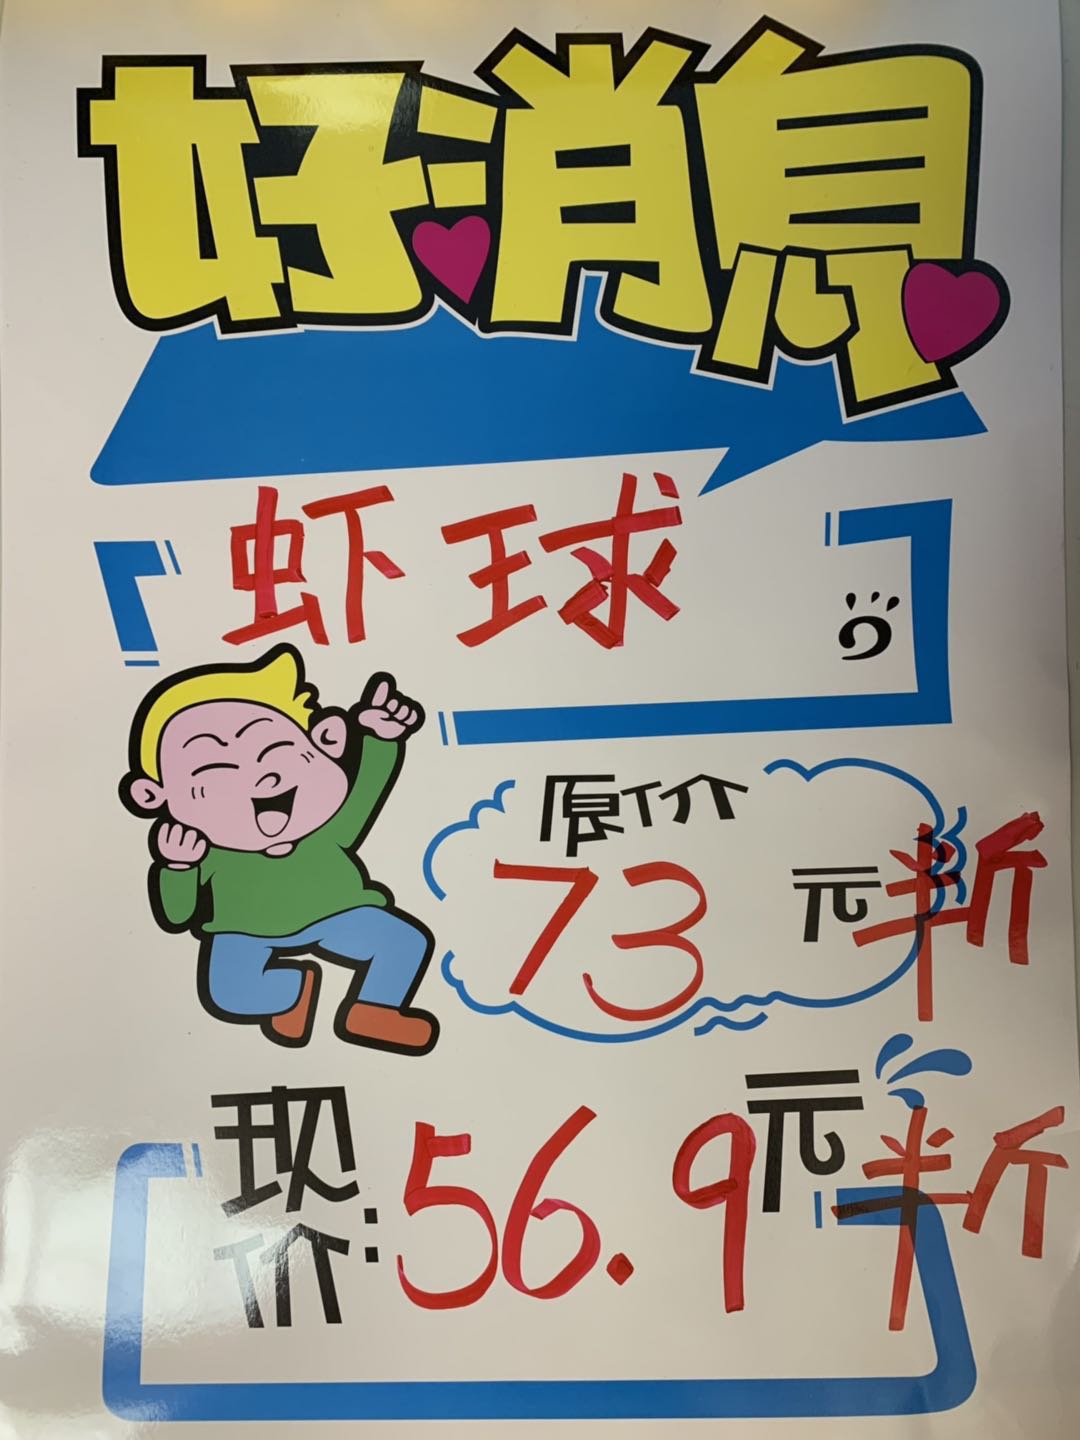 好消息
虾球
原价
73元半斤
现价:56.9元半斤